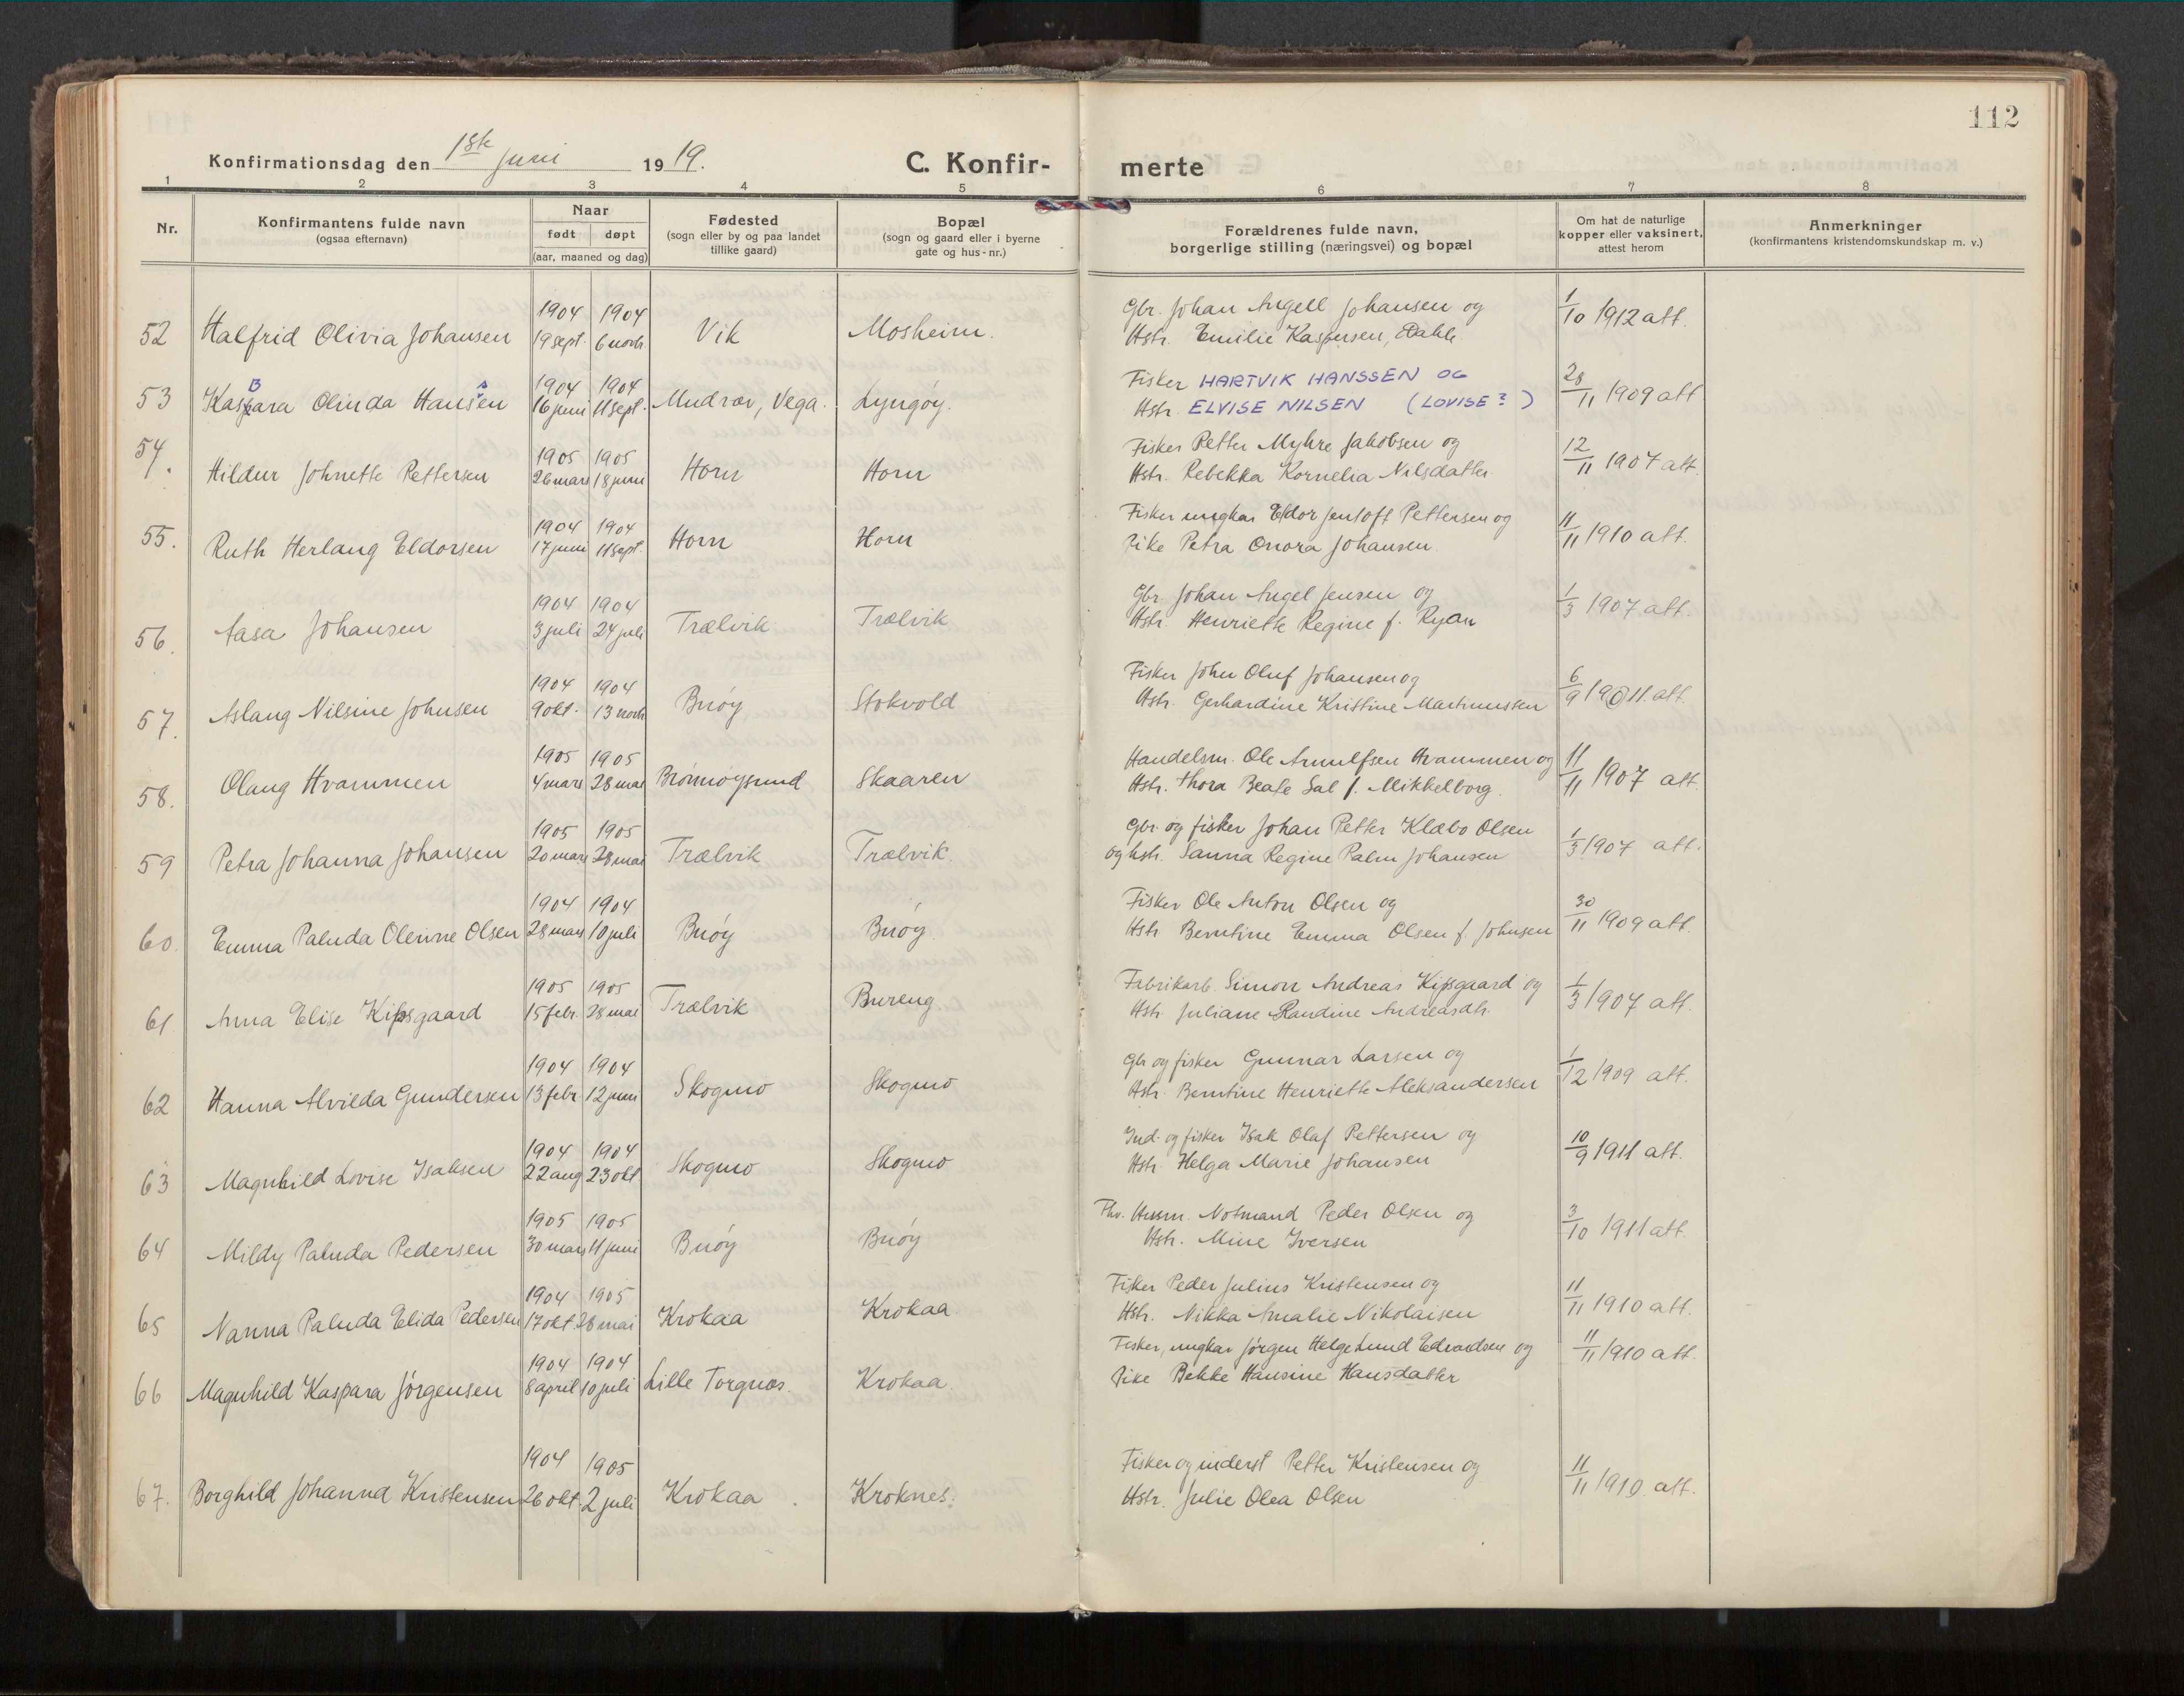 112
Konfirmationsdag den 1ste juni 1919.
C. Konfirmerte
1 2 3 4 5 6 7 8
Nr.
Konfirmantens fulde navn
(ogsaa efternavn)
Naar
født døpt
(aar, maaned og dag)
Fødested
(sogn eller by og paa landet
tillike gaard)
Bopæl
(sogn og gaard eller i byerne
gate og hus-nr.)
Forældrenes fulde navn,
borgerlige stilling (næringsvei) og bopæl
Om hat de naturlige
kopper eller vaksinert,
attest herom
Anmerkninger
(konfirmantens kristendomskundskap m. v.)
1904 1904 Gbr. Johan Angell Johansen og
52 Halfrid Olivia Johansen 19 sept. 6 novb. Vik Mosheim. Hstr. Emilie Kaspersen, Dahle. 1/10 1912 att.
1904 1904 Fisker HARTVIK HANSSEN OG
53 Kaspara B Olinda Hansen s 16 juni 11 sept. Mudvær, Vega. Lyngøy. Hstr. ELVISE NILSEN (LOVISE?) 28/11 1909 att
1905 1905 Fisker Petter Myhre Jakobsen og
54. Hildur Johnette Pettersen 26 mars 18 juni Horn Horn Hstr. Rebekka Kornelia Nilsdatter. 12/11 1907 att.
1904 1904 Fisker ungkar Eldor Jentoft Pettersen og
55. Ruth Herlaug Eldorsen 17 juni 11 sept. Horn Horn Pike Petra Onora Johansen. 11/11 1910 att.
1904 1904 Gbr. Johan Angel Jensen og
56. Aasa Johansen 3 juli 24 juli Trælvik Trælvik Hstr. Henriette Regine f. Ryan 1/3 1907 att.
1904 1904 Fisker John Oluf Johansen og
57. Aslaug Nilsine Johnsen 9 okt. 13 novb Buøy Stokvold Hstr. Gerhardine Kristine Martinussen 6/9 1911. att.
1905 1905 Handelsm. Ole Arnulfsen Hvammen og
58. Olaug Hvammen 4 mars 28 mai Brønnøysund Skaaren Hstr. Thora Beate Sal f. Mikkelborg. 11/11 1907 att.
1905 1905 Gbr. og fisker Johan Petter Klæbo Olsen
59 Petra Johanna Johansen 20 mars 28 mai Trælvik Trælvik og hstr. Sanna Regine Palm Johansen 1/3 1907 att.
1904 1904 Fisker Ole Anton Olsen og
60. Emma Paluda Olerine Olsen 28 mars 10 juli Buøy Buøy. Hstr Berntine Emma Olsen f. Johnsen 30/11 1909 att.
1905 1905 Fabrikarb. Simon Andreas Kipsgaard og
61 Anna Elise Kipsgaard 15 febr. 28 mai Trælvik Bureng. Hstr. Juliane Randine Andreasdtr. 1/3 1907 att.
1904 1904 Gbr og fisker Gunnar Larsen og
62 Hanna Alvilda Gundersen 13 febr 12 juni Skogmo Skogmo Hstr. Berntine Henriette Aleksandersen 1/12 1909 att.
1904 1904 Ind. og fisker Isak Olaf Pettersen og
63 Magnhild Lovise Isaksen 22 aug 23 okt Skogmo Skogmo Hstr. Helga Marie Johansen 10/9 1911 att.
1905 1905 Fhv. Husm. Notmand Peder Olsen og
64 Mildy Paluda Pedersen 30 mars 11 juni Buøy Buøy Hstr. Mine Iversen 3/10 1911 att.
1904 1905 Fisker Peder Julius Kristensen og
65 Nanna Paluda Elida Pedersen 17 okt. 28 mai Krokaa Krokaa Hstr. Nikka Amalie Nikolaisen 11/11 1910 att.
1904 1904 Fisker, ungkar Jørgen Helgelund Edvardsen og
66 Magnhild Kaspara Jørgensen 8 april 10 juli Lille Torgnes. Krokaa. Pike Bekke Hansine Hansdatter 11/11 1910 att.
1904 1905 Fisker og inderst Petter Kristensen og
67. Borghild Johanna Kristensen 26 okt. 2 juli Krokaa. Kroknes. Hstr. Julie Olea Olsen 11/11 1910. att.